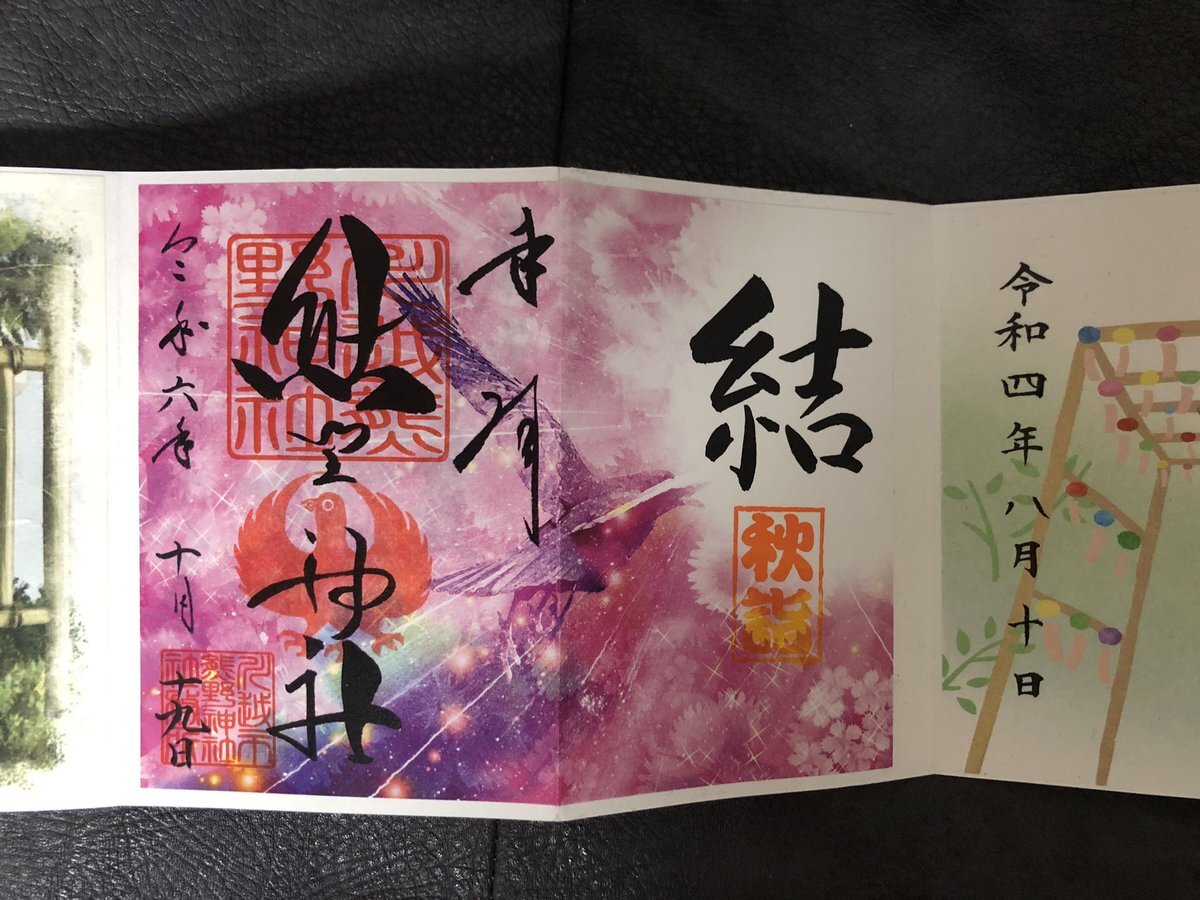 令和四年八月十日
結
秋詣
奉拝
川越熊
野神社
熊野神社
令和六年十月十九日
川越市
熊野神社